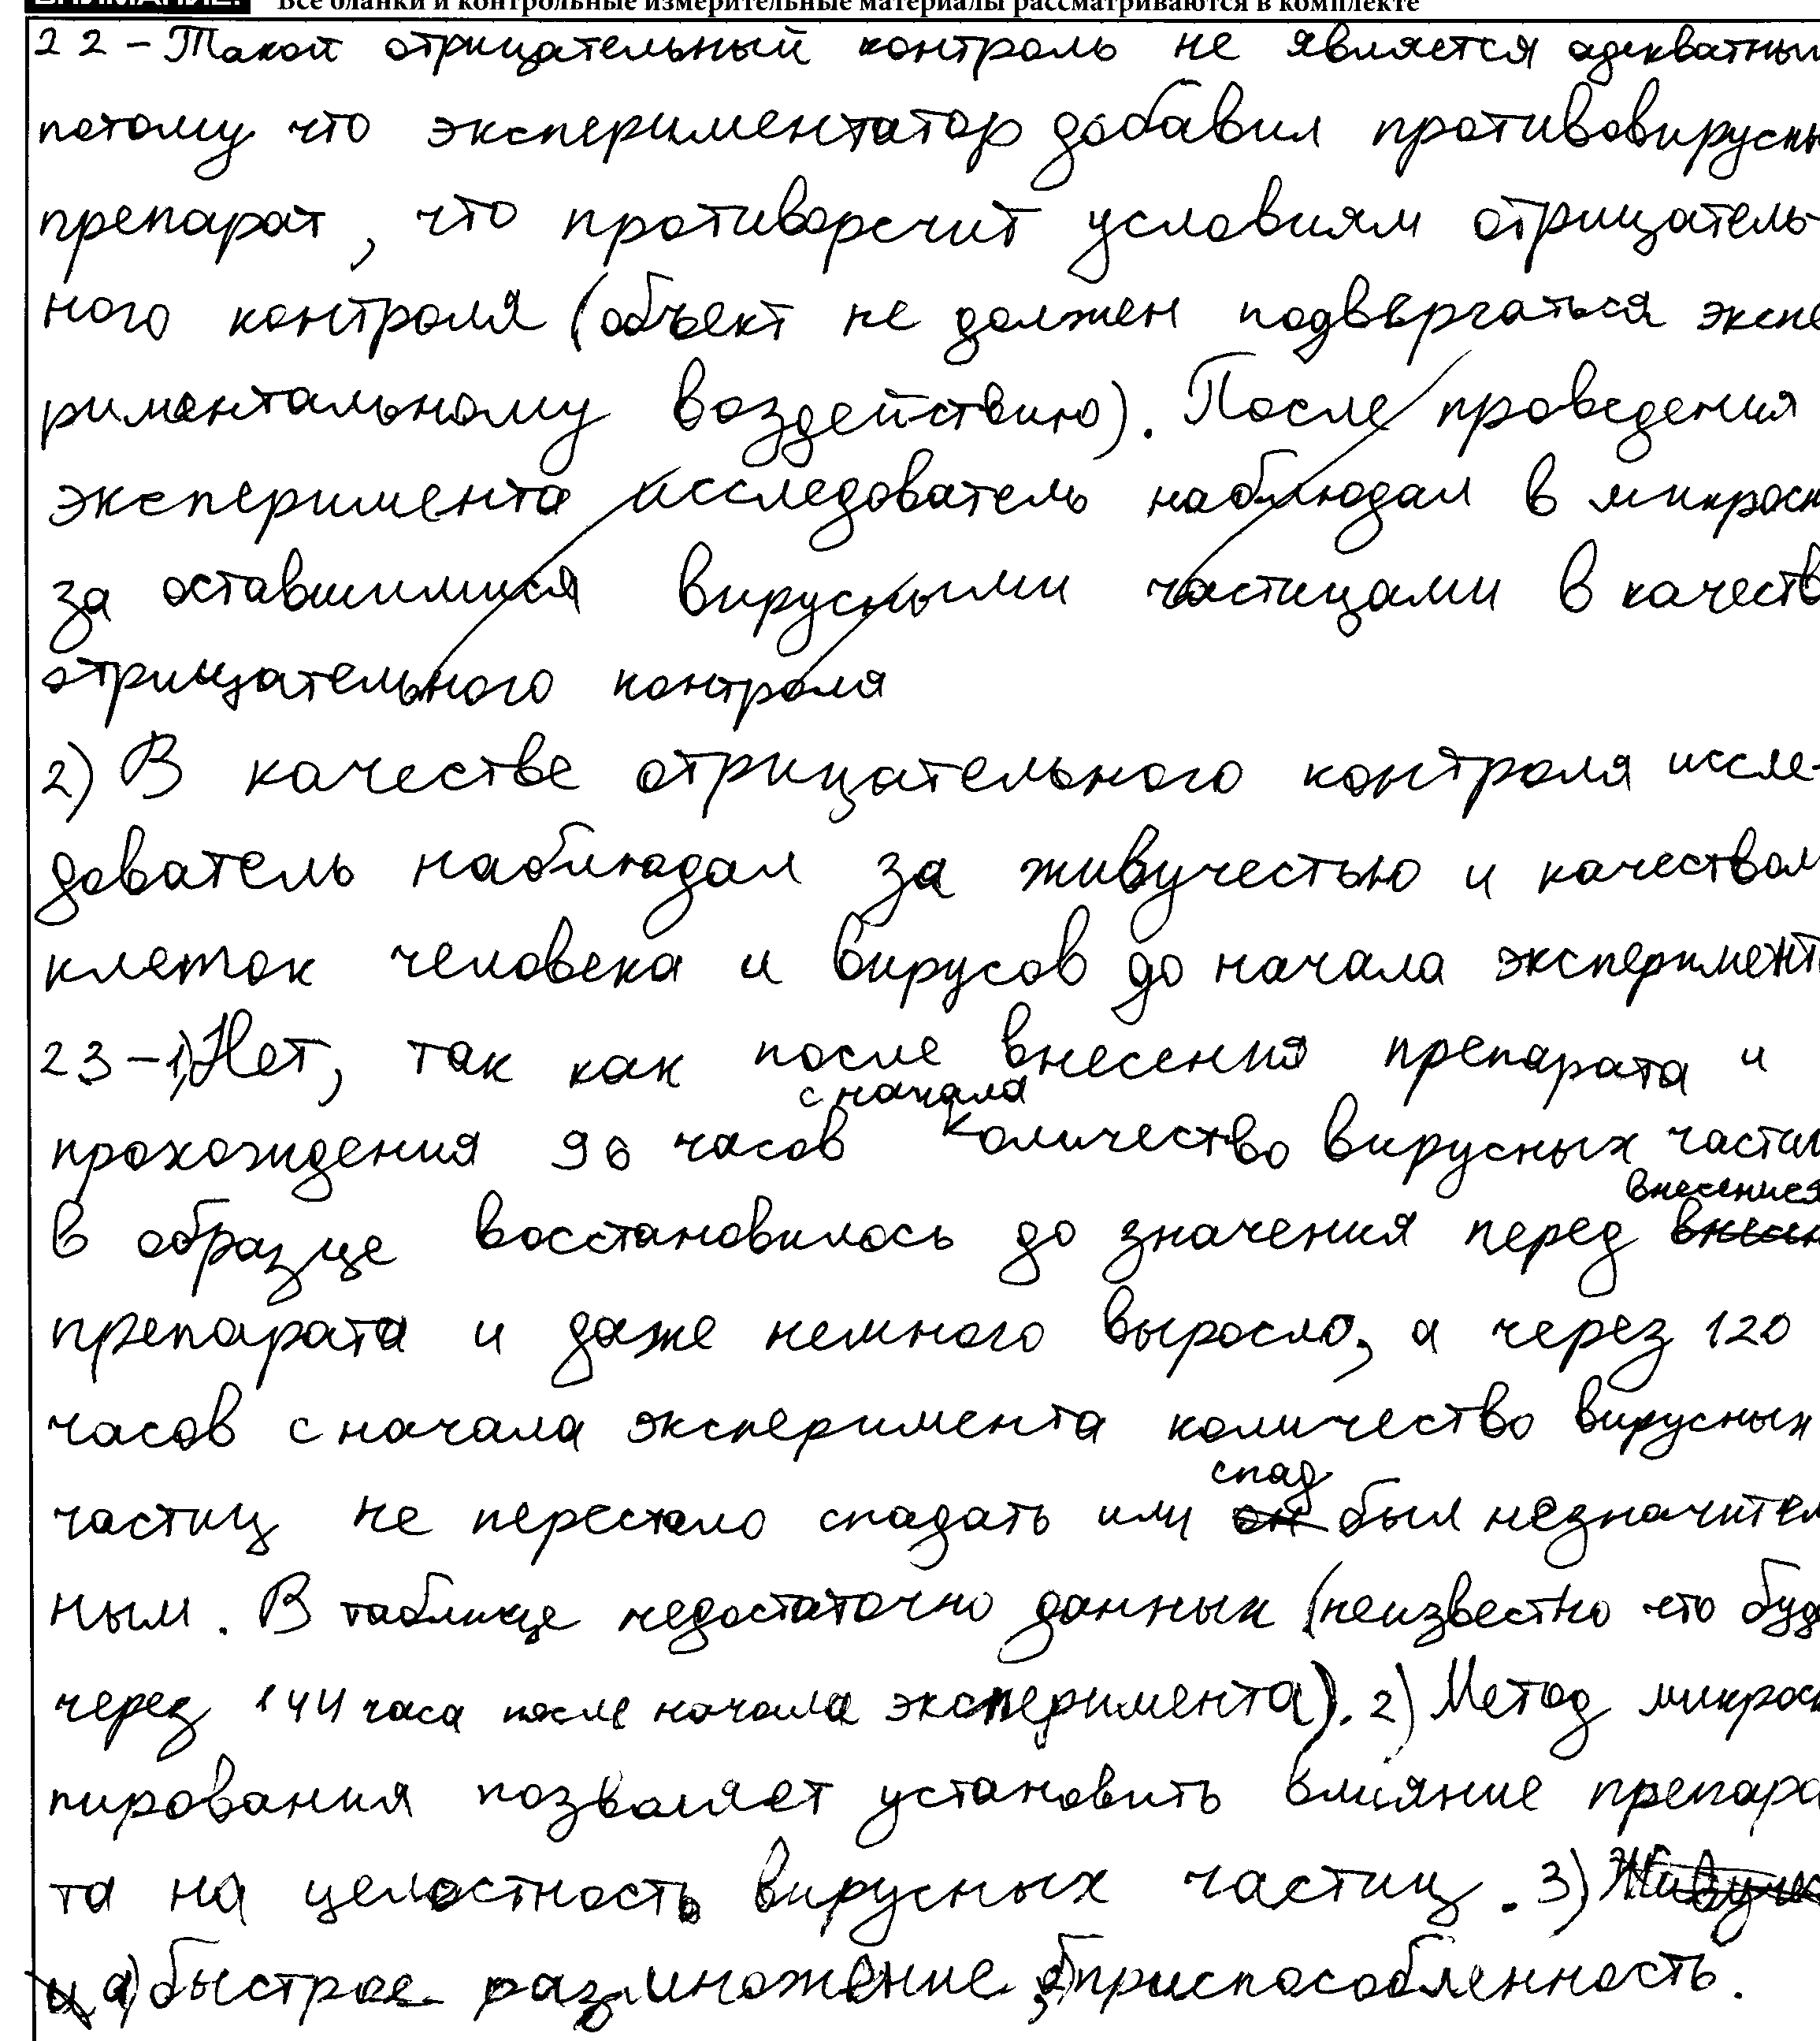 Все бланки и контрольные измерительные материалы рассматриваются в комплекте
22 - Такой отрицательный контроль не является адекватны
потому что экспериментатор добавил противовирусн
препарат, что противоречит условиям отрицатель-
ного контроля (объект не должен подвергаться экспе
риментальному воздействию). После проведения
эксперимента исследователь наблюдал в микроск
за оставшимися вирусными частицами в качеств
отрицательного контроля
2) В качестве отрицательного контроля иссле-
дователь наблюдал за живучестью и качеством
клеток человека и вирусов до начала эксперимент
23-1) Нет, так как после внесения препарата и
сначала
прохождения 96 часов количество вирусных частиц
внесения
в образце восстановилось до значения перед внесен
препарата и даже немного выросло, а через 120
часов с начала эксперимента количество вирусных
спад
частиц не перестало спадать или он был незначител
ным. В таблице недостаточно данных (неизвестно что буде
через 144 часа после начала эксперимента). 2) Метод микроск
пирования позволяет установить влияние препара
та на целостность вирусных частиц. 3) Живуче
а) быстрое размножение, б) приспособленность.